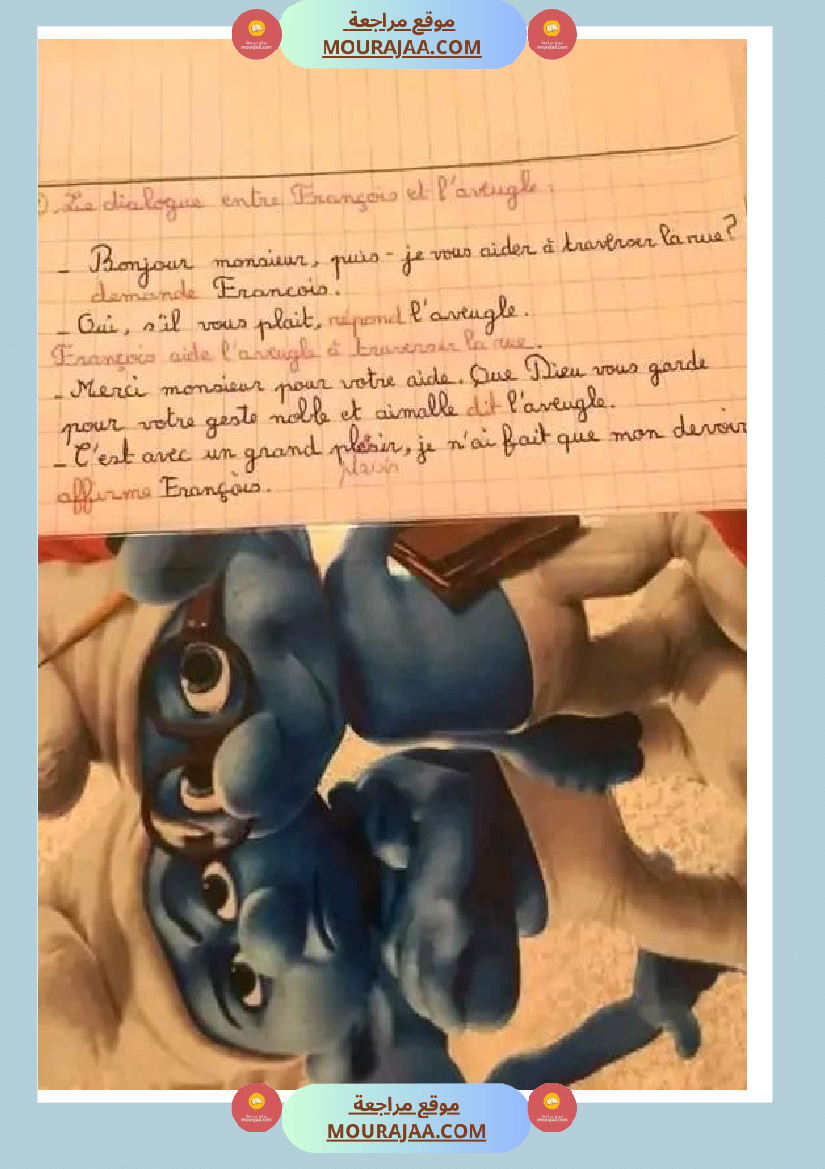 موقع مراجعة
MOURAJAA.COM
). Le dialogue entre François et l'aveugle :
_ Bonjour monsieur, puis-je vous aider à traverser la rue?
demande Francois.
_ Oui, s'il vous plait, répond l'aveugle.
François aide l'aveugle à traverser la rue.
_ Merci monsieur pour votre aide. Que Dieu vous garde
pour votre geste noble et aimalle dit l'aveugle.
_ C'est avec un grand plésir, je n'ai fait que mon devoir
plaisir
affirme François.
موقع مراجعة
MOURAJAA.COM